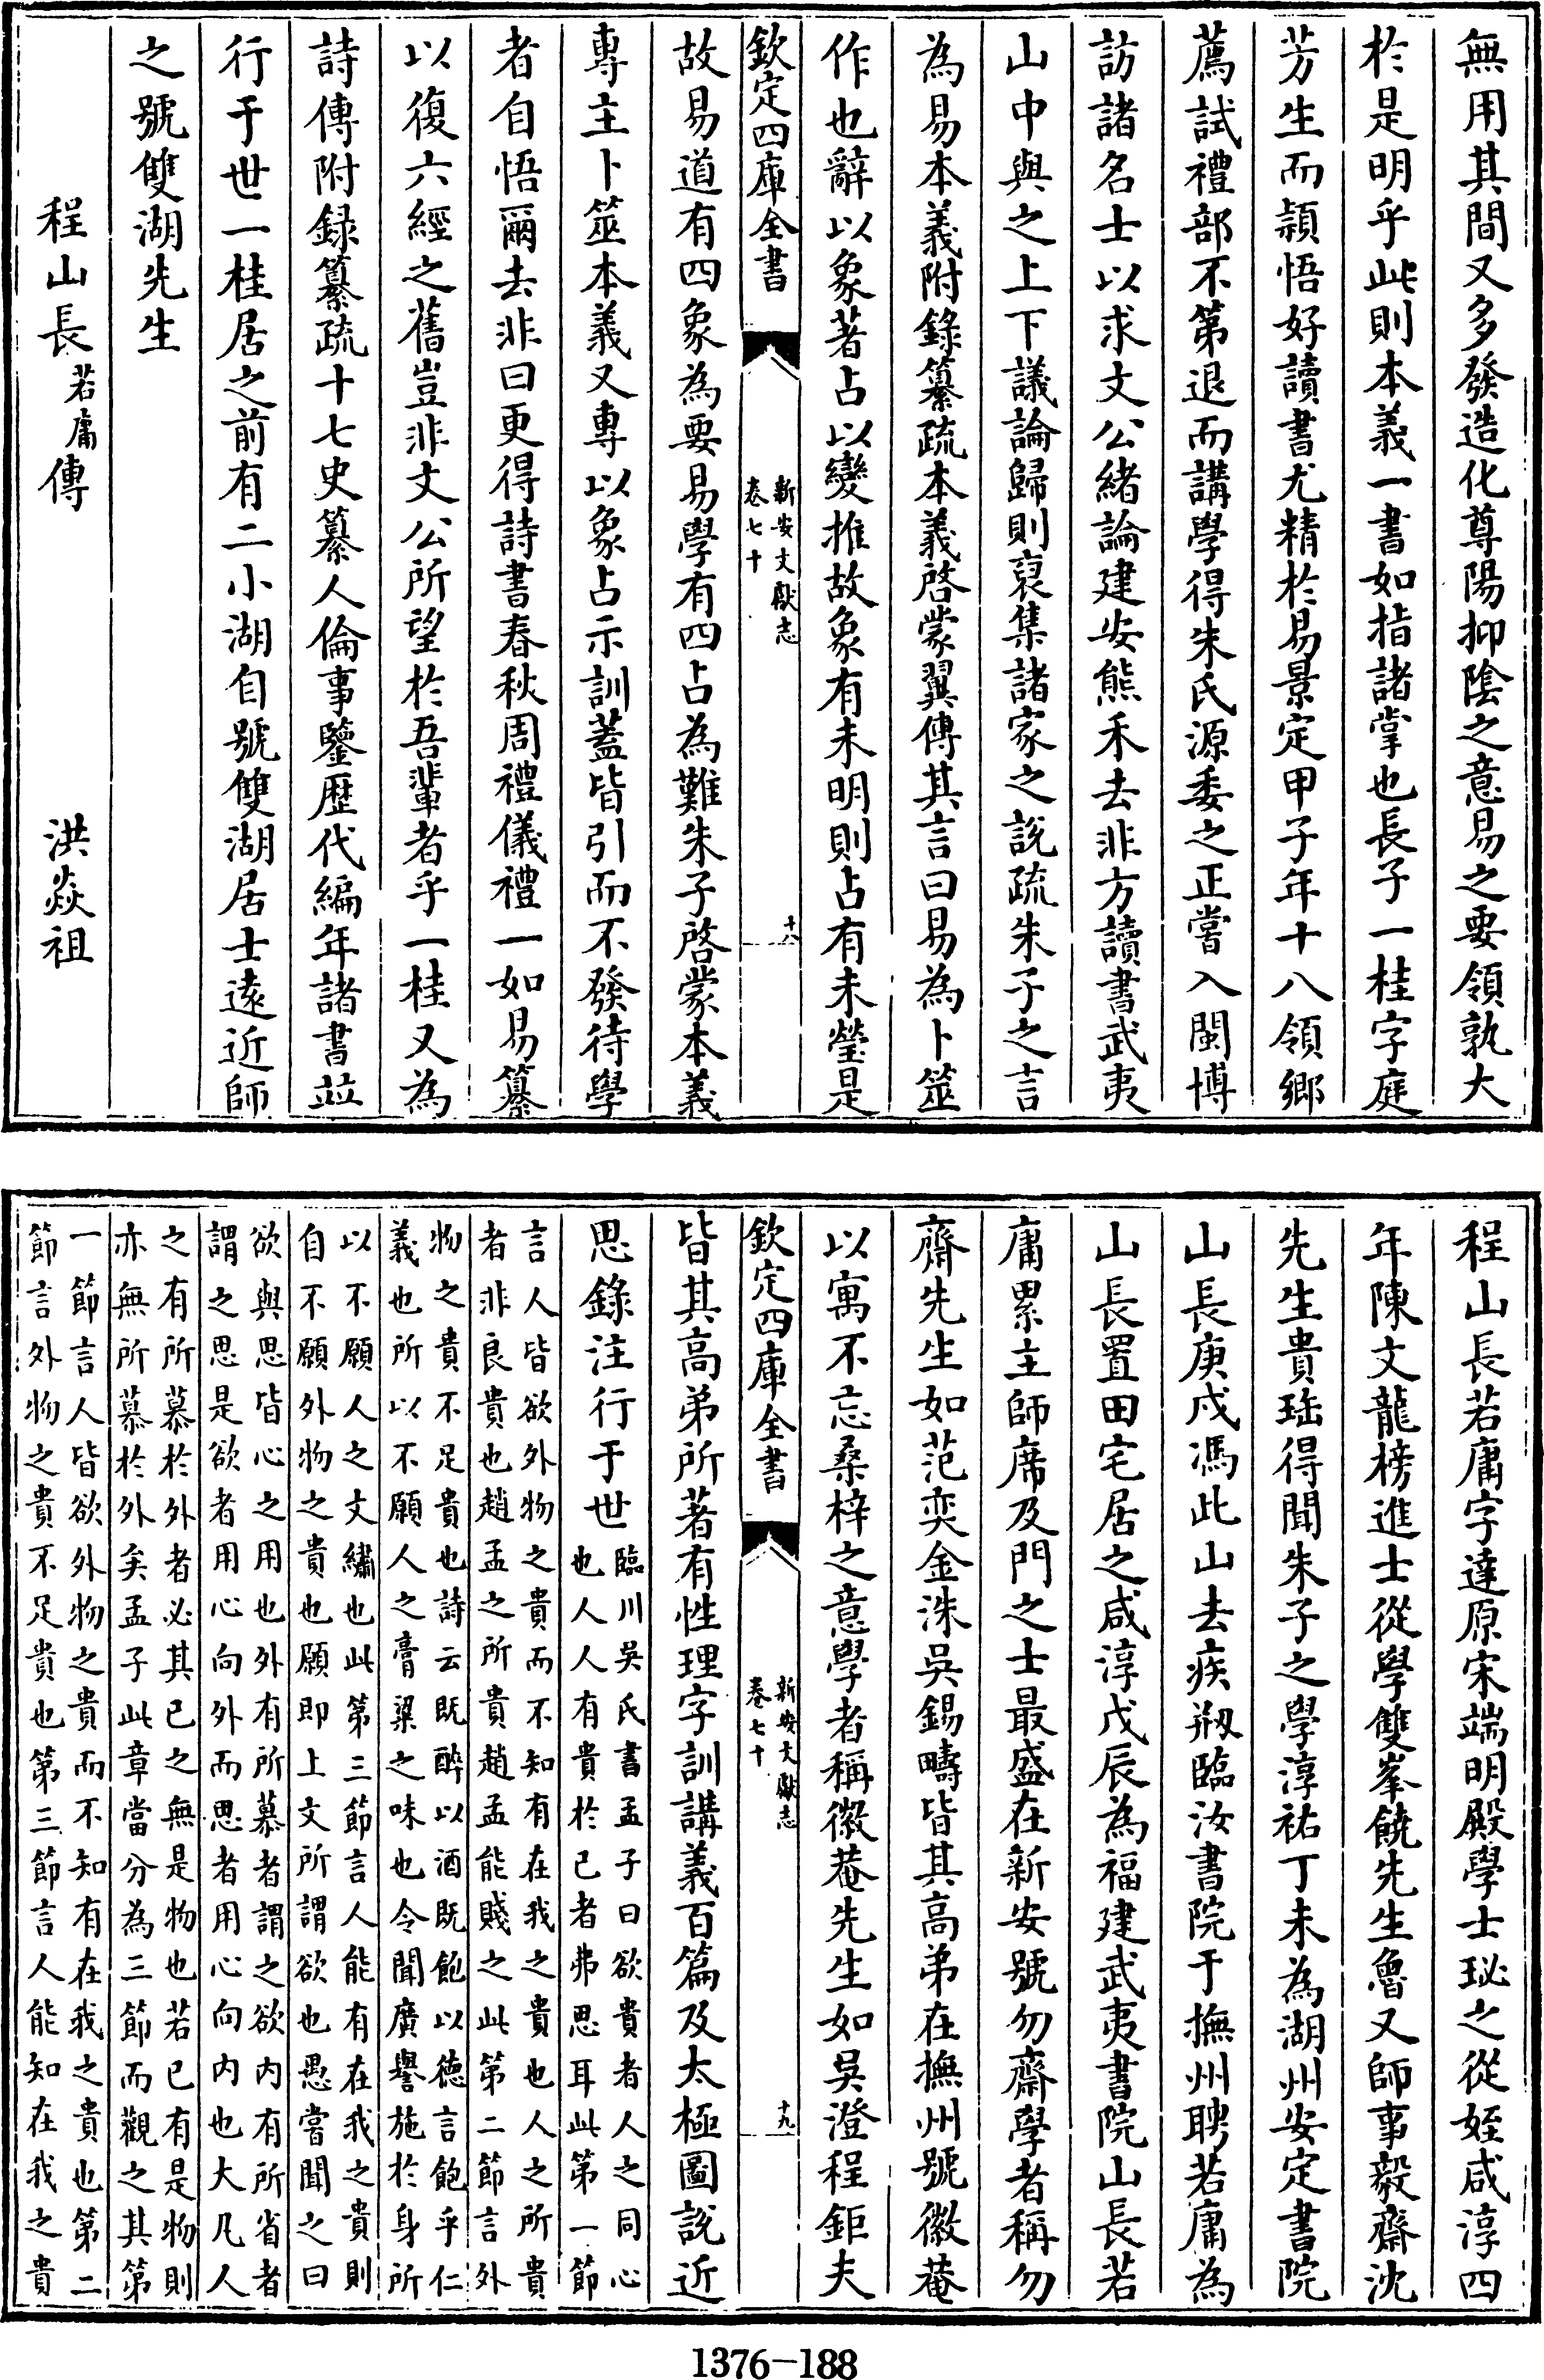 無用其間又多發造化尊陽抑陰之意易之要領孰大
於是明乎此則本義一書如指諸掌也長子一桂字庭
芳生而頴悟好讀書尤精於易景定甲子年十八領鄉
薦試禮部不第退而講學得朱氏源委之正嘗入閩博
訪諸名士以求文公緒論建安熊禾去非方讀書武夷
山中與之上下議論歸則裒集諸家之說疏朱子之言
為易本義附錄纂疏本義啓蒙翼傳其言曰易為卜筮
作也辭以象著占以變推故象有未明則占有未瑩是
欽定四庫全書
新安文獻志
卷七十
十八
故易道有四象為要易學有四占為難朱子啓蒙本義
專主卜筮本義又專以象占示訓蓋皆引而不發待學
者自悟爾去非曰更得詩書春秋周禮儀禮一如易纂
以復六經之舊豈非文公所望於吾輩者乎一桂又為
詩傳附録纂疏十七史纂人倫事鑒歷代編年諸書並
行于世一桂居之前有二小湖自號雙湖居士遠近師
之號雙湖先生
程山長若庸傳　洪焱祖
程山長若庸字達原宋端明殿學士珌之從姪咸淳四
年陳文龍榜進士從學雙峯饒先生魯又師事毅齋沈
先生貴珤得聞朱子之學淳祐丁未為湖州安定書院
山長庚戌馮此山去疾剏臨汝書院于撫州聘若庸為
山長置田宅居之咸淳戊辰為福建武夷書院山長若
庸累主師席及門之士最盛在新安號勿齋學者稱勿
齋先生如范奕金洙吳錫疇皆其高弟在撫州號徽菴
以寓不忘桑梓之意學者稱徽菴先生如吳澄程鉅夫
欽定四庫全書
新安文獻志
卷七十
十九
皆其高弟所著有性理字訓講義百篇及太極圖說近
思錄注行于世
臨川吳氏書孟子曰欲貴者人之同心
也人人有貴於已者弗思耳此第一節
言人皆欲外物之貴而不知有在我之貴也人之所貴
者非良貴也趙孟之所貴趙孟能賤之此第二節言外
物之貴不足貴也詩云既醉以酒既飽以徳言飽乎仁
義也所以不願人之膏粱之味也令聞廣譽施於身所
以不願人之文繡也此第三節言人能有在我之貴則
自不願外物之貴也願即上文所謂欲也愚嘗聞之曰
欲與思皆心之用也外有所慕者謂之欲内有所省者
謂之思是欲者用心向外而思者用心向内也大凡人
之有所慕於外者必其已之無是物也若已有是物則
亦無所慕於外矣孟子此章當分為三節而觀之其第
一節言人皆欲外物之貴而不知有在我之貴也第二
節言外物之貴不足貴也第三節言人能知在我之貴
1376-188